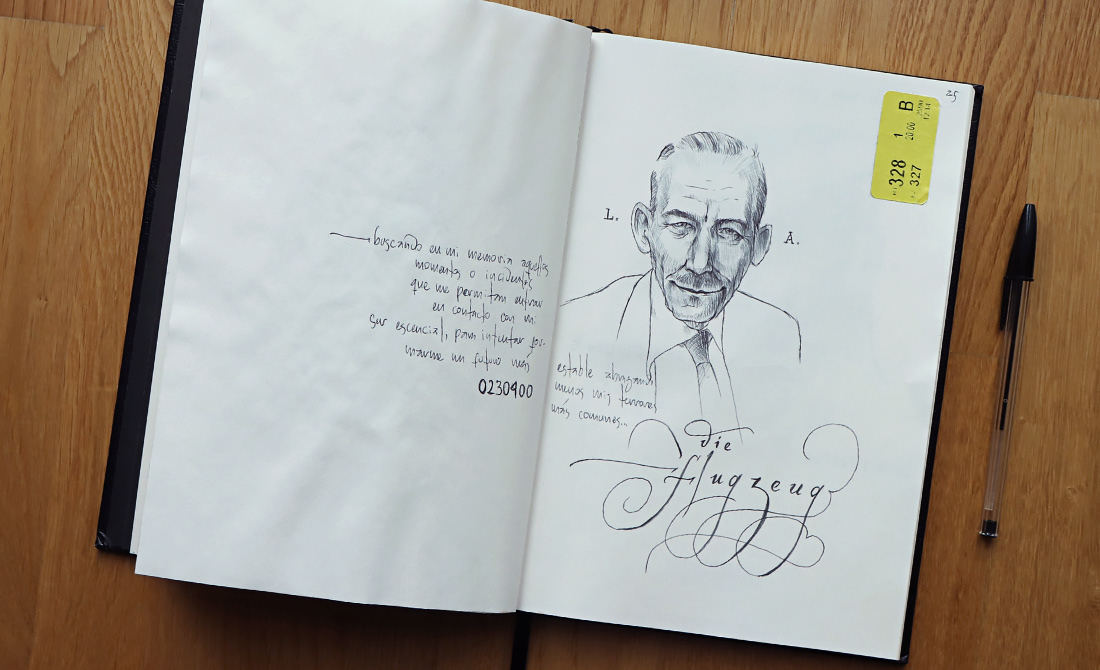 buscando en mi memoria aquellos
momentos o incidentes
que me permitan entrar
en contacto con mi
ser escencial, para intentar for-
marme un futuro más
0230900
25
B
1
328
327
20:00
12:14
L.
A.
estable
menos mis terrores
más comunes...
die
flugzeug